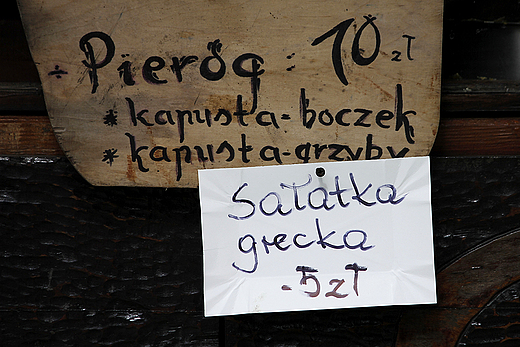 ÷ Pieróg : 10 zł
* kapusta-boczek
* kapusta-grzyby
Sałatka
grecka
-5zł